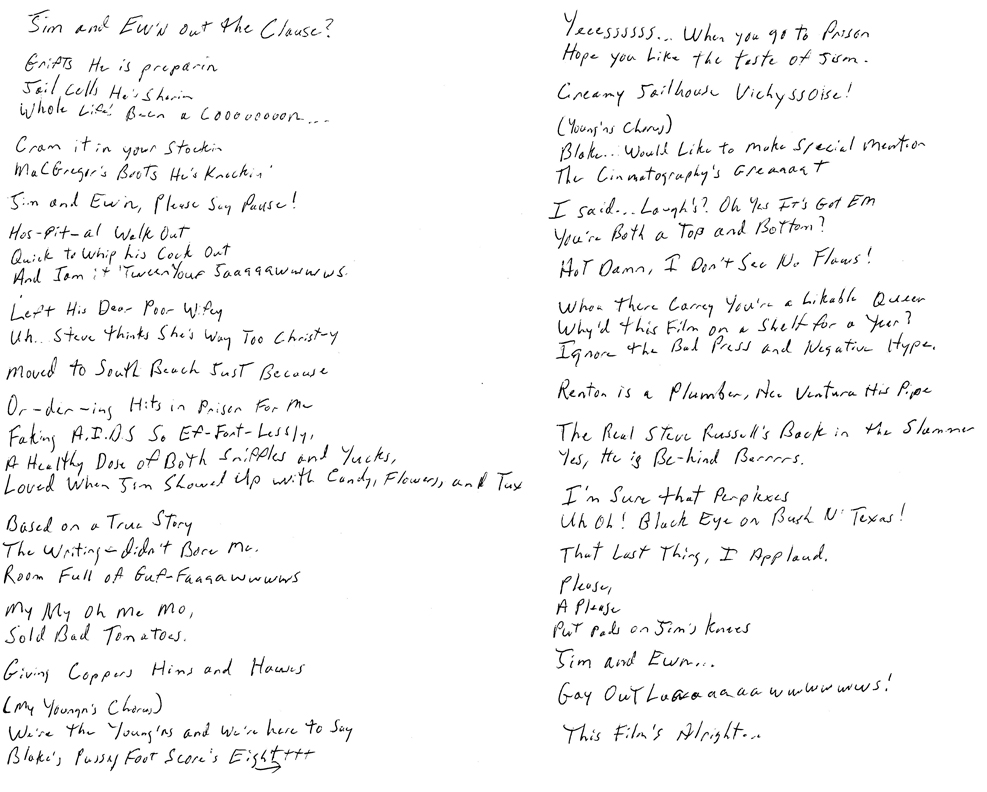 Jim and Ew'n out the Clause?
Grifts He is preparin
Jail Cells He's Sharin
Whole Life! Been a Coooooooon...
Cram it in your Stockin
MacGregor's Boots He's Knockin'
Jim and Ew'n, Please Say Pause!
Hos-pit-al Walk Out
Quick to Whip his Cock Out
And Jam it 'Tween Your Jaaaaawwwws.
Left His Dear Poor Wifey
Uh.. Steve thinks She's Way Too Christ-y
Moved to South Beach Just Because
Or-der-ing Hits in Prison For Me
Faking A.I.D.S So Ef-Fort-Lessly,
A Healthy Dose of Both Sniffles and Yucks,
Loved When Jim Showed Up with Candy, Flowers, and Tux
Based on a True Story
The Writing - didn't Bore Me.
Room Full of Guf-Faaaawwwws
My My Oh me mo,
Sold Bad Tomatoes.
Giving Coppers Hims and Hawes
(My Youngn's Chorus)
We're the Young'ns and we're here to Say
Blake's Pussy Foot Score's Eighttttt
Yeeesssssss... When you go to Prison
Hope you Like the taste of Jism.
Creamy Jailhouse Vichyssoise!
(Young'ns Chorus)
Blake... Would Like to make Special mention
The Cinmatography's Greaaaat
I said... Laugh's? Oh Yes It's Got Em
You're Both a Top and Bottom?
Hot Damn, I Don't See No Flaws!
Whoa there Carrey You're a Likable Queen
Why'd this Film on a Shelf for a Year?
Ignore the Bad Press and Negative Hype.
Renton is a Plumber, Nec Ventura His Pipe
The Real Steve Russell's Back in the Slammer
Yes, He is Be-hind Barrrrs.
I'm Sure that Perplexes
Uh Oh! Black Eye on Bush N' Texas!
That Last Thing, I Applaud.
Please,
A Please
Put Pads on Jim's Knees
Jim and Ewn...
Gay Outlaaaaaaawwwwwws!
This Film's Alright...